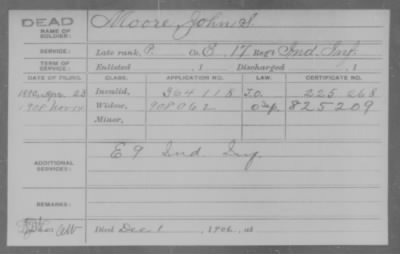 DEAD
NAME OF SOLDIER: Moore John S.
SERVICE: Late rank, P. Co. E, 17 Reg't Ind. Inf.
TERM OF SERVICE: Enlisted , 1 Discharged , 1
DATE OF FILING. CLASS. APPLICATION NO. LAW. CERTIFICATE NO.
1880, Apr. 23 Invalid, 364118 225268
1908 Nov 14 Widow, 908062 825209
Minor,
ADDITIONAL SERVICES: E 9 Ind Inf.
REMARKS:
Died Dec 1, 1906, at